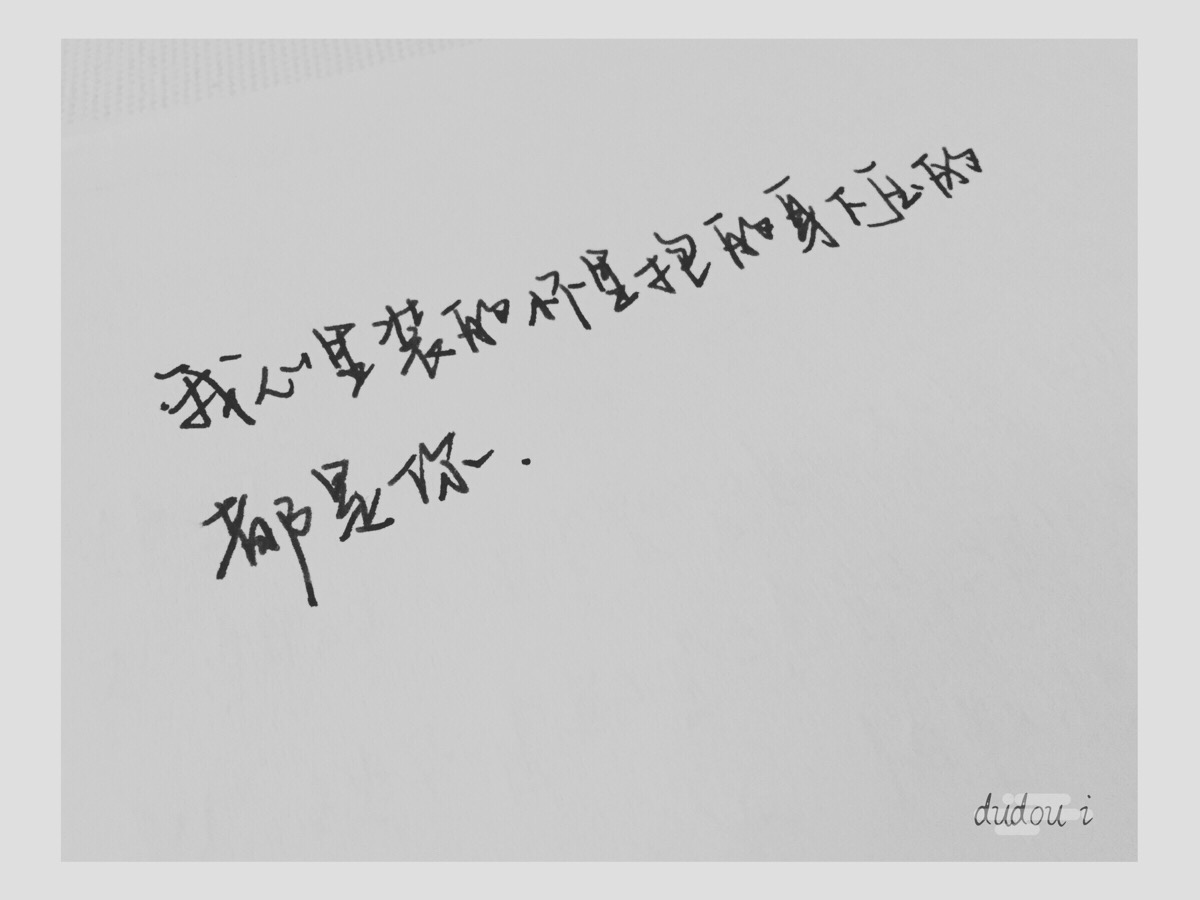 我心里装的怀里抱的身下压的
都是你.
dudou i